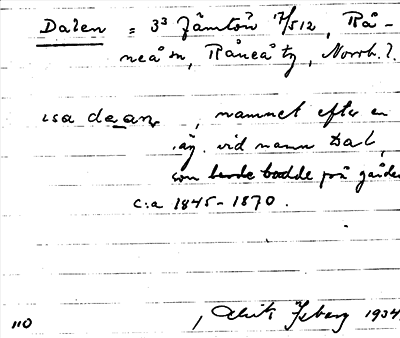 Dalen = 3³ Jämtön 7/512, Rå-
neå sn, Råneå tg, Norrb. l.
, namnet efter en
äg. vid namn Dal,
som bodde på gården
c:a 1845-1870.
110 1934